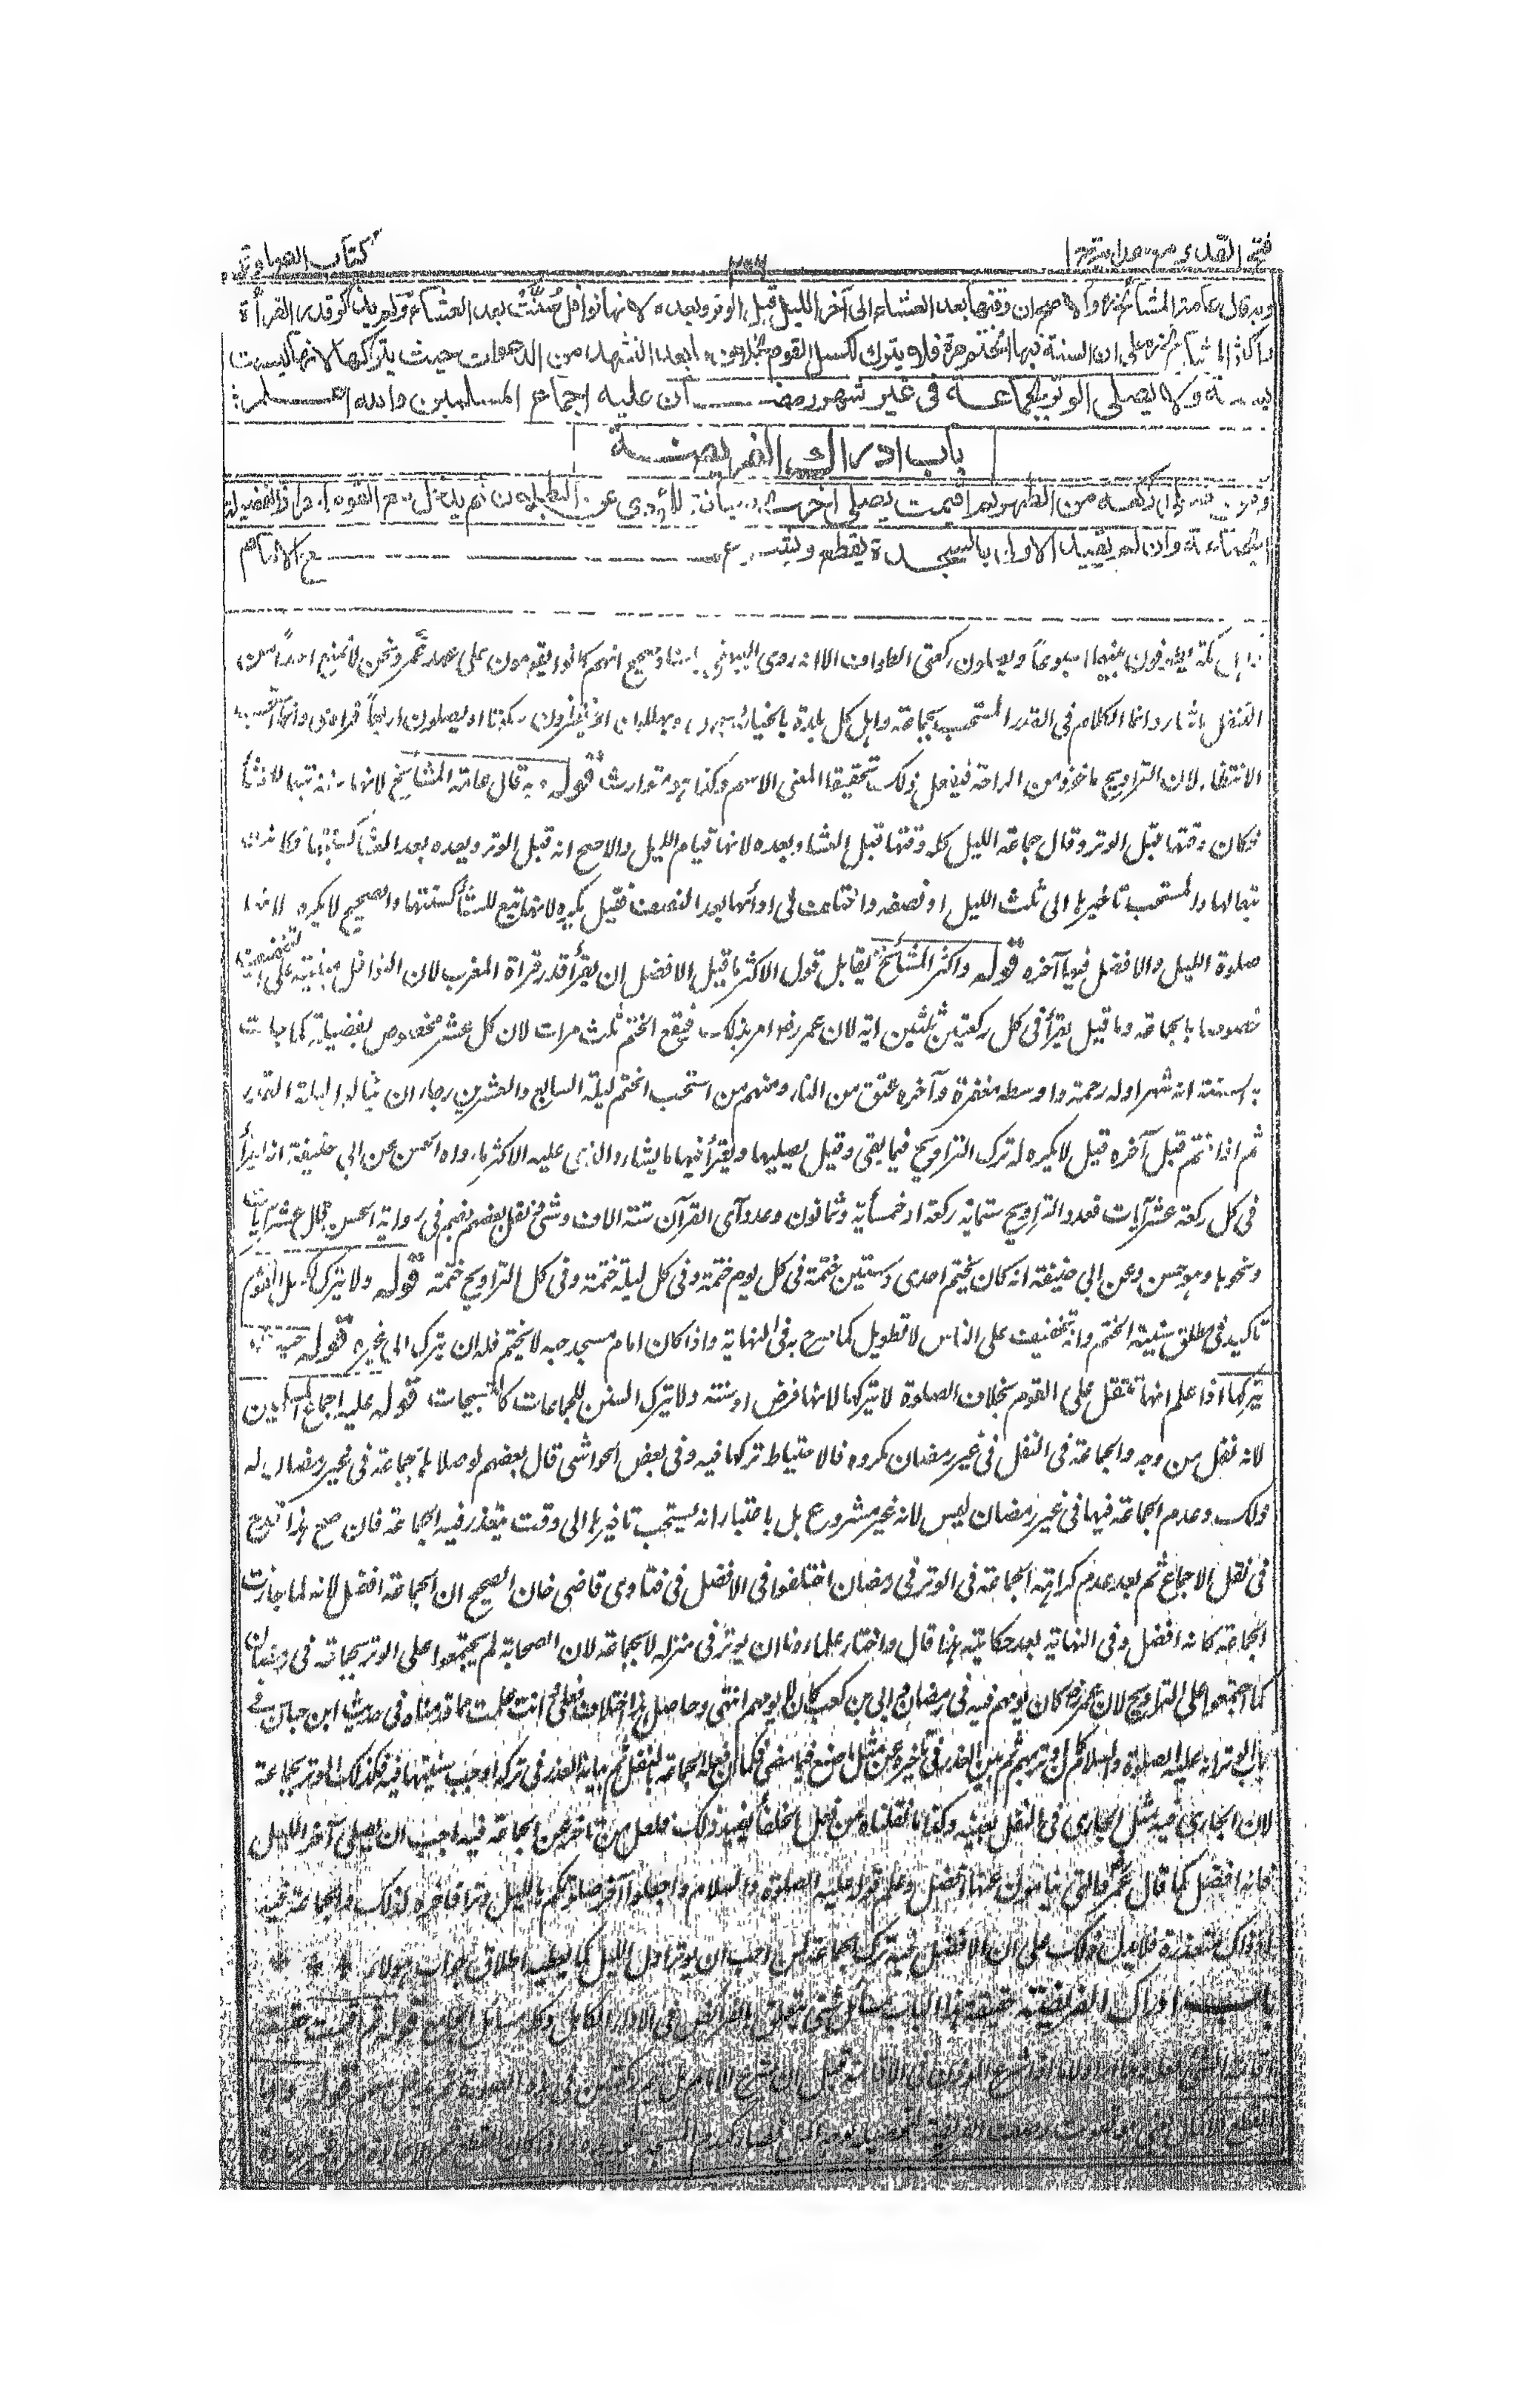 فتح القدير مع هداية ج ا
٢٠٦
كتاب الصلوة
وبه قال عامة المشائخ والاصح ان وقتها بعد العشاء الى آخر الليل قبل الوتر وبعده لانها نوافل سنت بعد العشاء ولم يذكر قدر القرأة
واكثر المشائخ على ان السنة فيها الختم مرة فلا يترك لكسل القوم بخلاف ما بعد التشهد من الدعوات حيث يتركها لانها ليست
بسنة ولا يصلى الوتر بجماعة فى غير شهر رمضان عليه اجماع المسلمين والله اعلم
باب ادراك الفريضة
ومن صلى ركعة من الظهر ثم اقيمت يصلى اخرى صيانة للمؤدى عن البطلان ثم يدخل مع القوم احرازا لفضيلة
الجماعة وان لم يقيد الاولى بالسجدة يقطع ويشرع مع الامام
اهل مكة يطوفون بينهما اسبوعا ويصلون ركعتى الطواف الا انه روى البيهقى باسناد صحيح انهم كانوا يقومون على عهد عمر ونحن لا نمنع احدا من
التنفل ما شاء وانما الكلام فى القدر المستحب بجماعة واهل كل بلدة بالخيار يسبحون او يهللون او ينتظرون سكوتا او يصلون اربعا فرادى وانما استحب
الانتظار لان التراويح ماخوذ من الراحة فيفعل ذلك تحقيقا لمعنى الاسم وكذا هو متوارث قوله وبه قال عامة المشائخ لانها
فكان وقتها قبل الوتر وقال جماعة الليل كله وقتها قبل العشاء وبعده لانها قيام الليل والاصح انه قبل الوتر وبعده بعد العشاء
تبعا لها والمستحب تاخيرها الى ثلث الليل او نصفه واختلفت فى ادائها بعد النصف فقيل يكره لانها تبع للعشاء كسنتها والصحيح لا يكره لانها
صلوة الليل والافضل فيها آخره قوله واكثر المشائخ يقابل قول الاكثر ما قيل الافضل ان يقرأ قدر قراة المغرب لان النوافل مبنية على التخفيف
خصوصا بالجماعة وما قيل يقرأ فى كل ركعتين ثلثين اية لان عمر رضـ امر بذلك فيقع الختم ثلث مرات لان كل عشر مخصوص بفضيلة كما جاءت
به السنة انه شهر اوله رحمة واوسطه مغفرة وآخره عتق من النار ومنهم من استحب الختم ليلة السابع والعشرين رجاء ان ينالوا ليلة القدر
ثم اذا ختم قبل آخره قيل لا يكره له ترك التراويح فيما بقى وقيل يصليها ويقرأ فيها ما يشاء والذى عليه الاكثر ما رواه الحسن عن ابى حنيفة انه يقرأ
فى كل ركعة عشر آيات فعدد التراويح ستمائة ركعة او خمسمأية وثمانون وعدد آى القرآن ستة الاف وشئ نقل بعضهم فى رواية الحسن قال عشر آيات
ونحوها وهو حسن وعن ابى حنيفة انه كان يختم احدى وستين ختمة فى كل يوم ختمة وفى كل ليلة ختمة وفى كل التراويح ختمة قوله ولا يترك لكسل القوم
تاكيد فى مطلق سنية الختم وانه تخفيف على الناس لا تطويل كما صرح به فى النهاية واذا كان امام مسجد حيه لا يختم فله ان يترك الى غيره قوله حيث
يتركها اذا علم انها تثقل على القوم بخلاف الصلوة لا يتركها لانها فرض او سنة ولا يترك السنن للجماعات كالتسبيحات قوله عليه اجماع المسلمين
لانه نفل من وجه والجماعة فى النفل فى غير رمضان مكروه فالاحتياط تركها فيه وفى بعض الحواشى قال بعضهم لو صلاها بجماعة فى غير رمضان له
ذلك وعدم الجماعة فيها فى غير رمضان ليس لانه غير مشروع بل باعتبار انه يستحب تاخيرها الى وقت يتعذر فيه الجماعة فان صح هذا قدح
فى نقل الاجماع ثم بعد عدم كراهة الجماعة فى الوتر فى رمضان اختلفوا فى الافضل فى فتاوى قاضى خان الصحيح ان الجماعة افضل لانه لما جازت
الجماعة كانه افضل وفى النهاية بعد حكاية هذا قال واختار علماؤنا ان يوتر فى منزله لا بجماعة لان الصحابة لم يجتمعوا على الوتر بجماعة فى رمضان
كما اجتمعوا على التراويح لان عمر رضـ كان يؤمهم فيه فى رمضان وابى بن كعب كان لا يؤمهم انتهى وحاصل هذا اختلاف فعلهم وانت علمت مما قدمناه فى حديث ابن حبان فى
باب الوتر انه عليه الصلوة والسلام كان اوتر بهم ثم بين العذر فى تاخيره عن مثل ما صنع فيما مضى فكما ان فعله الجماعة بالنفل ثم بيانه العذر فى تركه اوجب سنيتها فيه فكذلك الوتر بجماعة
لان الجارى فيه مثل الجارى فى النفل بعينه وكذا ما نقلناه من فعل الخلفاء يفيد ذلك فلعل من تاخر عن الجماعة فيه احب ان يصلى آخر الليل
فانه افضل كما قال عمر والتى ينامون عنها افضل وعلم قوله عليه الصلوة والسلام واجعلوا آخر صلوتكم بالليل وترا فاخره لذلك والجماعة فيه
اذ ذاك متعذرة فلا يدل ذلك على ان الافضل فيه ترك الجماعة لمن احب ان يوتر اول الليل كما يعطيه اطلاق جواب هؤلاء
باب ادراك الفريضة حقيقة هذا الباب مسائل شتى تتعلق بالفرائض فى الاداء الكامل وكله مسائل الجامع قوله ثم اقيمت